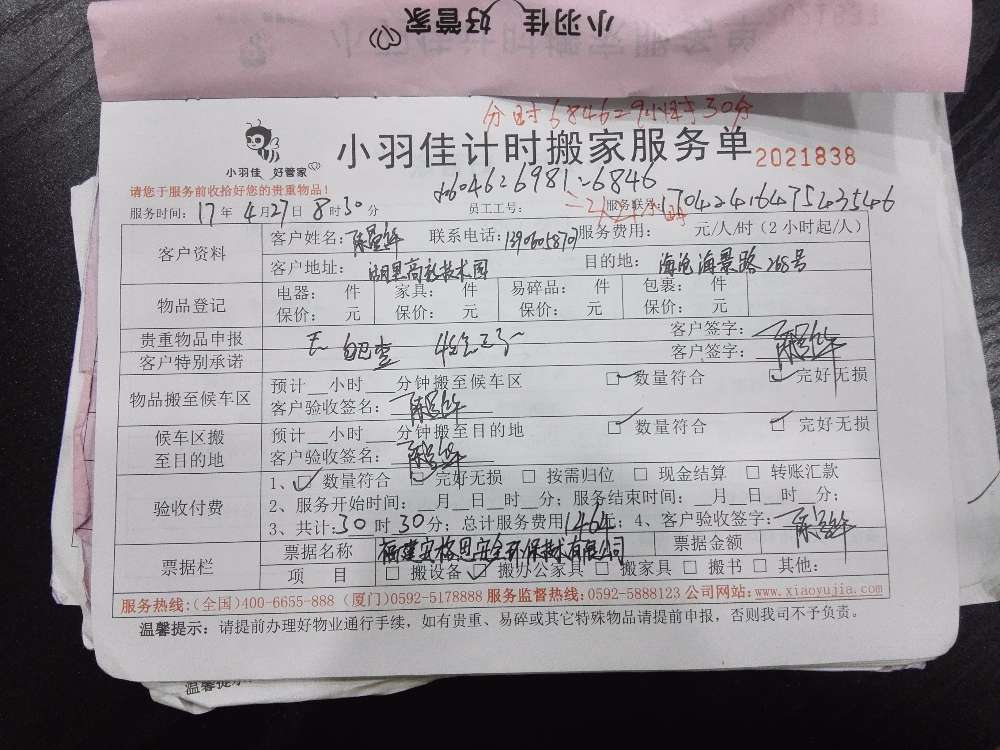 小羽佳 好管家
分时6846=9小时30分
小羽佳 好管家
小羽佳计时搬家服务单 2021838
请您于服务前收拾好您的贵重物品！
6046=6981=6846
服务时间：17年4月27日8时30分 员工工号： 服务联号：1704241647523546
客户资料 客户姓名： 联系电话： 服务费用： 元/人/时（2小时起/人）
客户地址：湖里高新技术园 目的地：海沧海景路268号
物品登记 电器： 件 家具： 件 易碎品： 件 包裹： 件
保价： 元 保价： 元 保价： 元 保价： 元
贵重物品申报 无 客户签字：
客户特别承诺 客户签字：
物品搬至候车区 预计__小时___分钟搬至候车区 ☑数量符合 ☑完好无损
客户验收签名：
候车区搬至目的地 预计__小时___分钟搬至目的地 ☑数量符合 ☑完好无损
客户验收签名：
验收付费 1、☑数量符合 ☑完好无损 □按需归位 □现金结算 □转账汇款
2、服务开始时间：__月__日__时__分；服务结束时间：__月__日__时__分；
3、共计：30时30分；总计服务费用1464元；4、客户验收签字：
票据栏 票据名称 福建安格思安全环保技术有限公司 票据金额
项 目 □搬设备 ☑搬办公家具 □搬家具 □搬书 □其他：
服务热线：（全国）400-6655-888（厦门）0592-5178888 服务监督热线：0592-5888123 公司网站：www.xiaoyujia.com
温馨提示：请提前办理好物业通行手续，如有贵重、易碎或其它特殊物品请提前申报，否则我司不予负责。
温馨提示